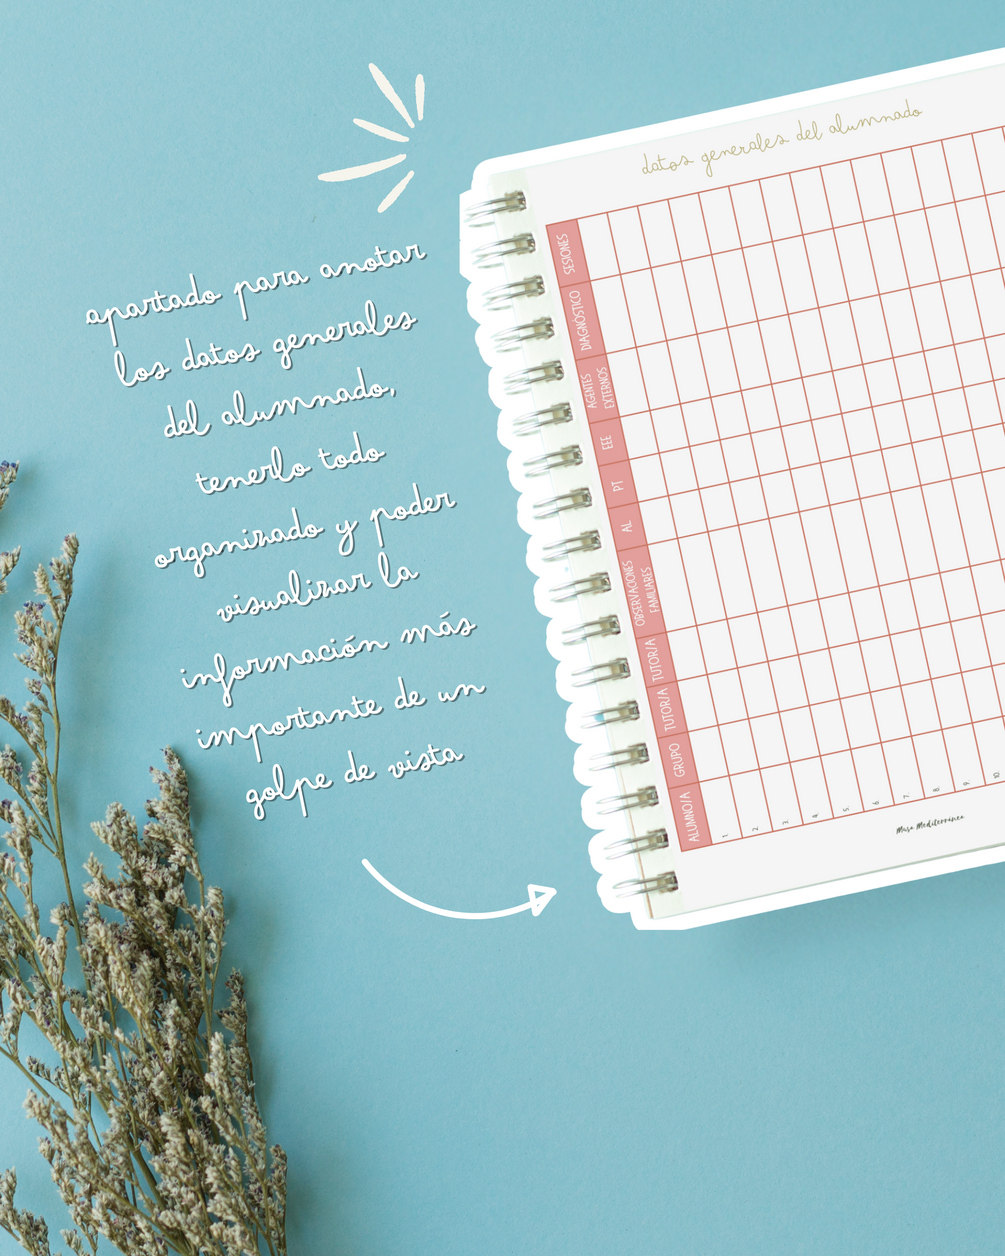 apartado para anotar
los datos generales
del alumnado,
tenerlo todo
organizado y poder
visualizar la
información más
importante de un
golpe de vista
datos generales del alumnado
SESIONES
DIAGNÓSTICO
AGENTES
EXTERNOS
EEE
PT
AL
OBSERVACIONES
FAMILIARES
TUTOR/A
TUTOR/A
GRUPO
ALUMNO/A
1.
2.
3.
4.
5.
6.
7.
8.
9.
10.
Musa Mediterránea